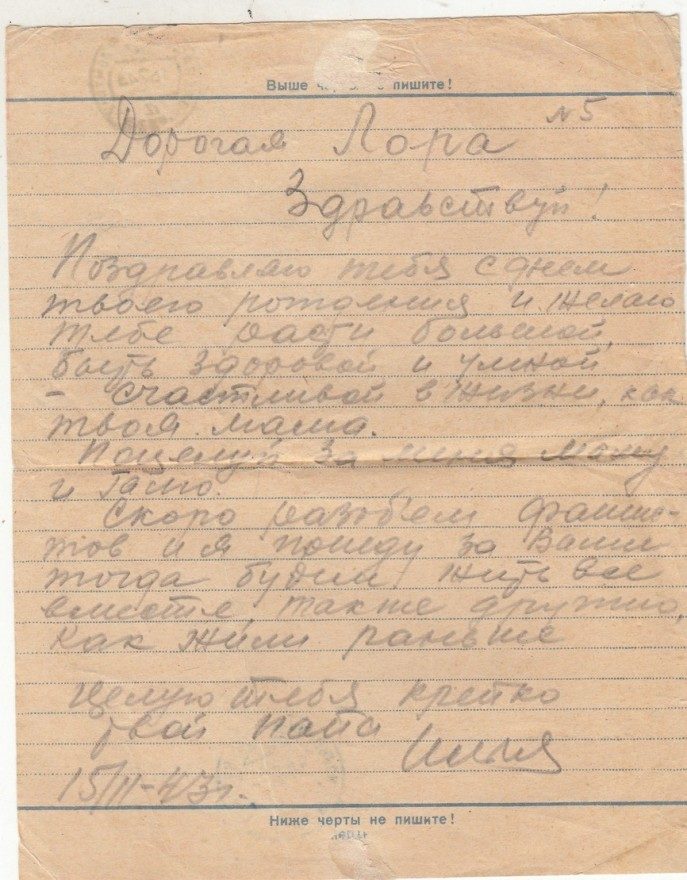 Выше черты не пишите!
№5
Дорогая Лора
Здравствуй!
Поздравляю тебя с днем
твоего рождения и желаю
тебе расти большой,
быть здоровой и умной
- счастливой в жизни, как
твоя мама.
Поцелуй за меня маму
и Галю.
Скоро разобьем фашис-
тов и я приеду за Вами
тогда будем жить все
вместе, также дружно,
как жили раньше
Целую тебя крепко
твой папа
Илья
15/III-43г.
Ниже черты не пишите!